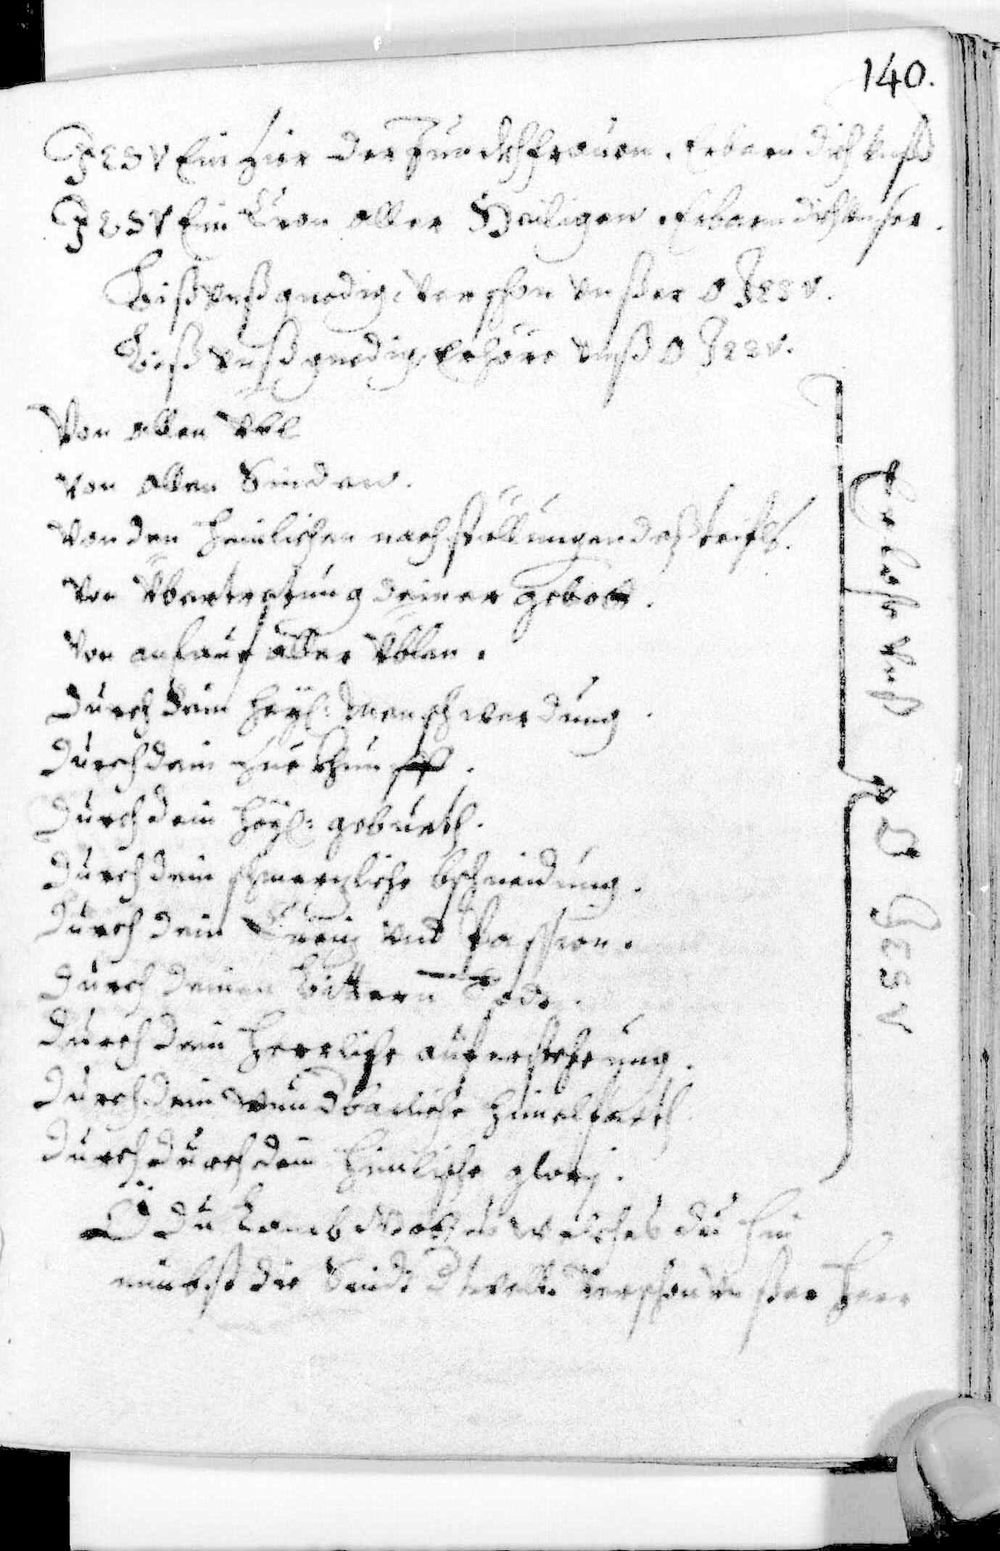 140.
JESV Ein Zier der Junckhfrauen. Erbarm dich vnßer
JESV Ein Cron aller Heiligen. Erbarm dich vnser.
Biß vnß gnedig, verschon vnßer O JESV.
Biß vnß gnedig, erhöre vnß O JESV.
Von allen Vbl
Von allen Sinden.
Von den heimlichen nachstöllungen deß teifls.
Von Vbertretung deiner gebott.
Von anlauf aller Vblen.
Durch dein heyl: Menschwerdung.
Durch dein zuekhunfft.
Durch dein heyl: geburth.
Durch dein schmerzliche bschneidung.
Durch dein Creiz vnd Passion.
Durch deinen bittern Tod.
Durch dein herrliche auferstehung.
Durch dein wunderliche himelfarth.
Durch durch dein himlische glorj.
O du Lamb Gottes welches du hin
nimbst die Sindt d welt. Verschon vnßer Herr
Erlöse vnß O JESV